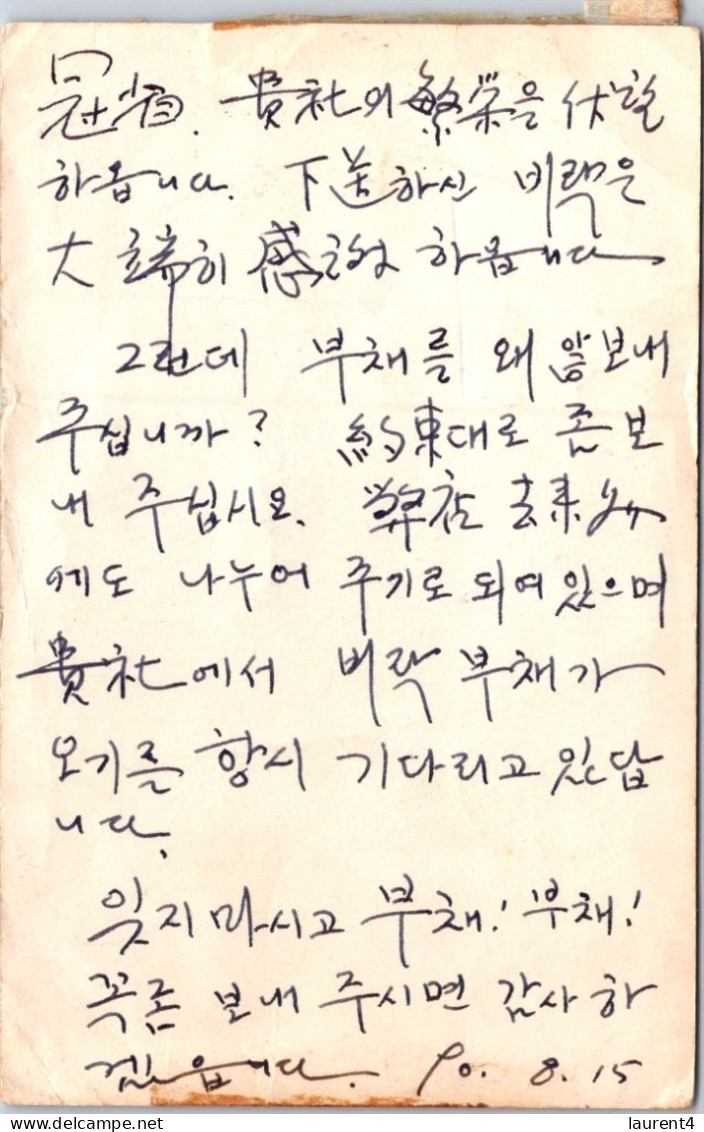 冠省. 貴社의 繁栄을 伏望
하옵니다. 下送하신 비락은
大端히 感謝 하옵니다
그런데 부채를 왜 않보내
주십니까? 約束대로 좀보
내 주십시요. 弊社 去来処
에도 나누어 주기로 되여있으며
貴社에서 비락 부채가
오기를 항시 기다리고 있답
니다.
잊지 마시고 부채! 부채!
꼭좀 보내 주시면 감사 하
겠읍니다. 90. 8. 15
laurent4